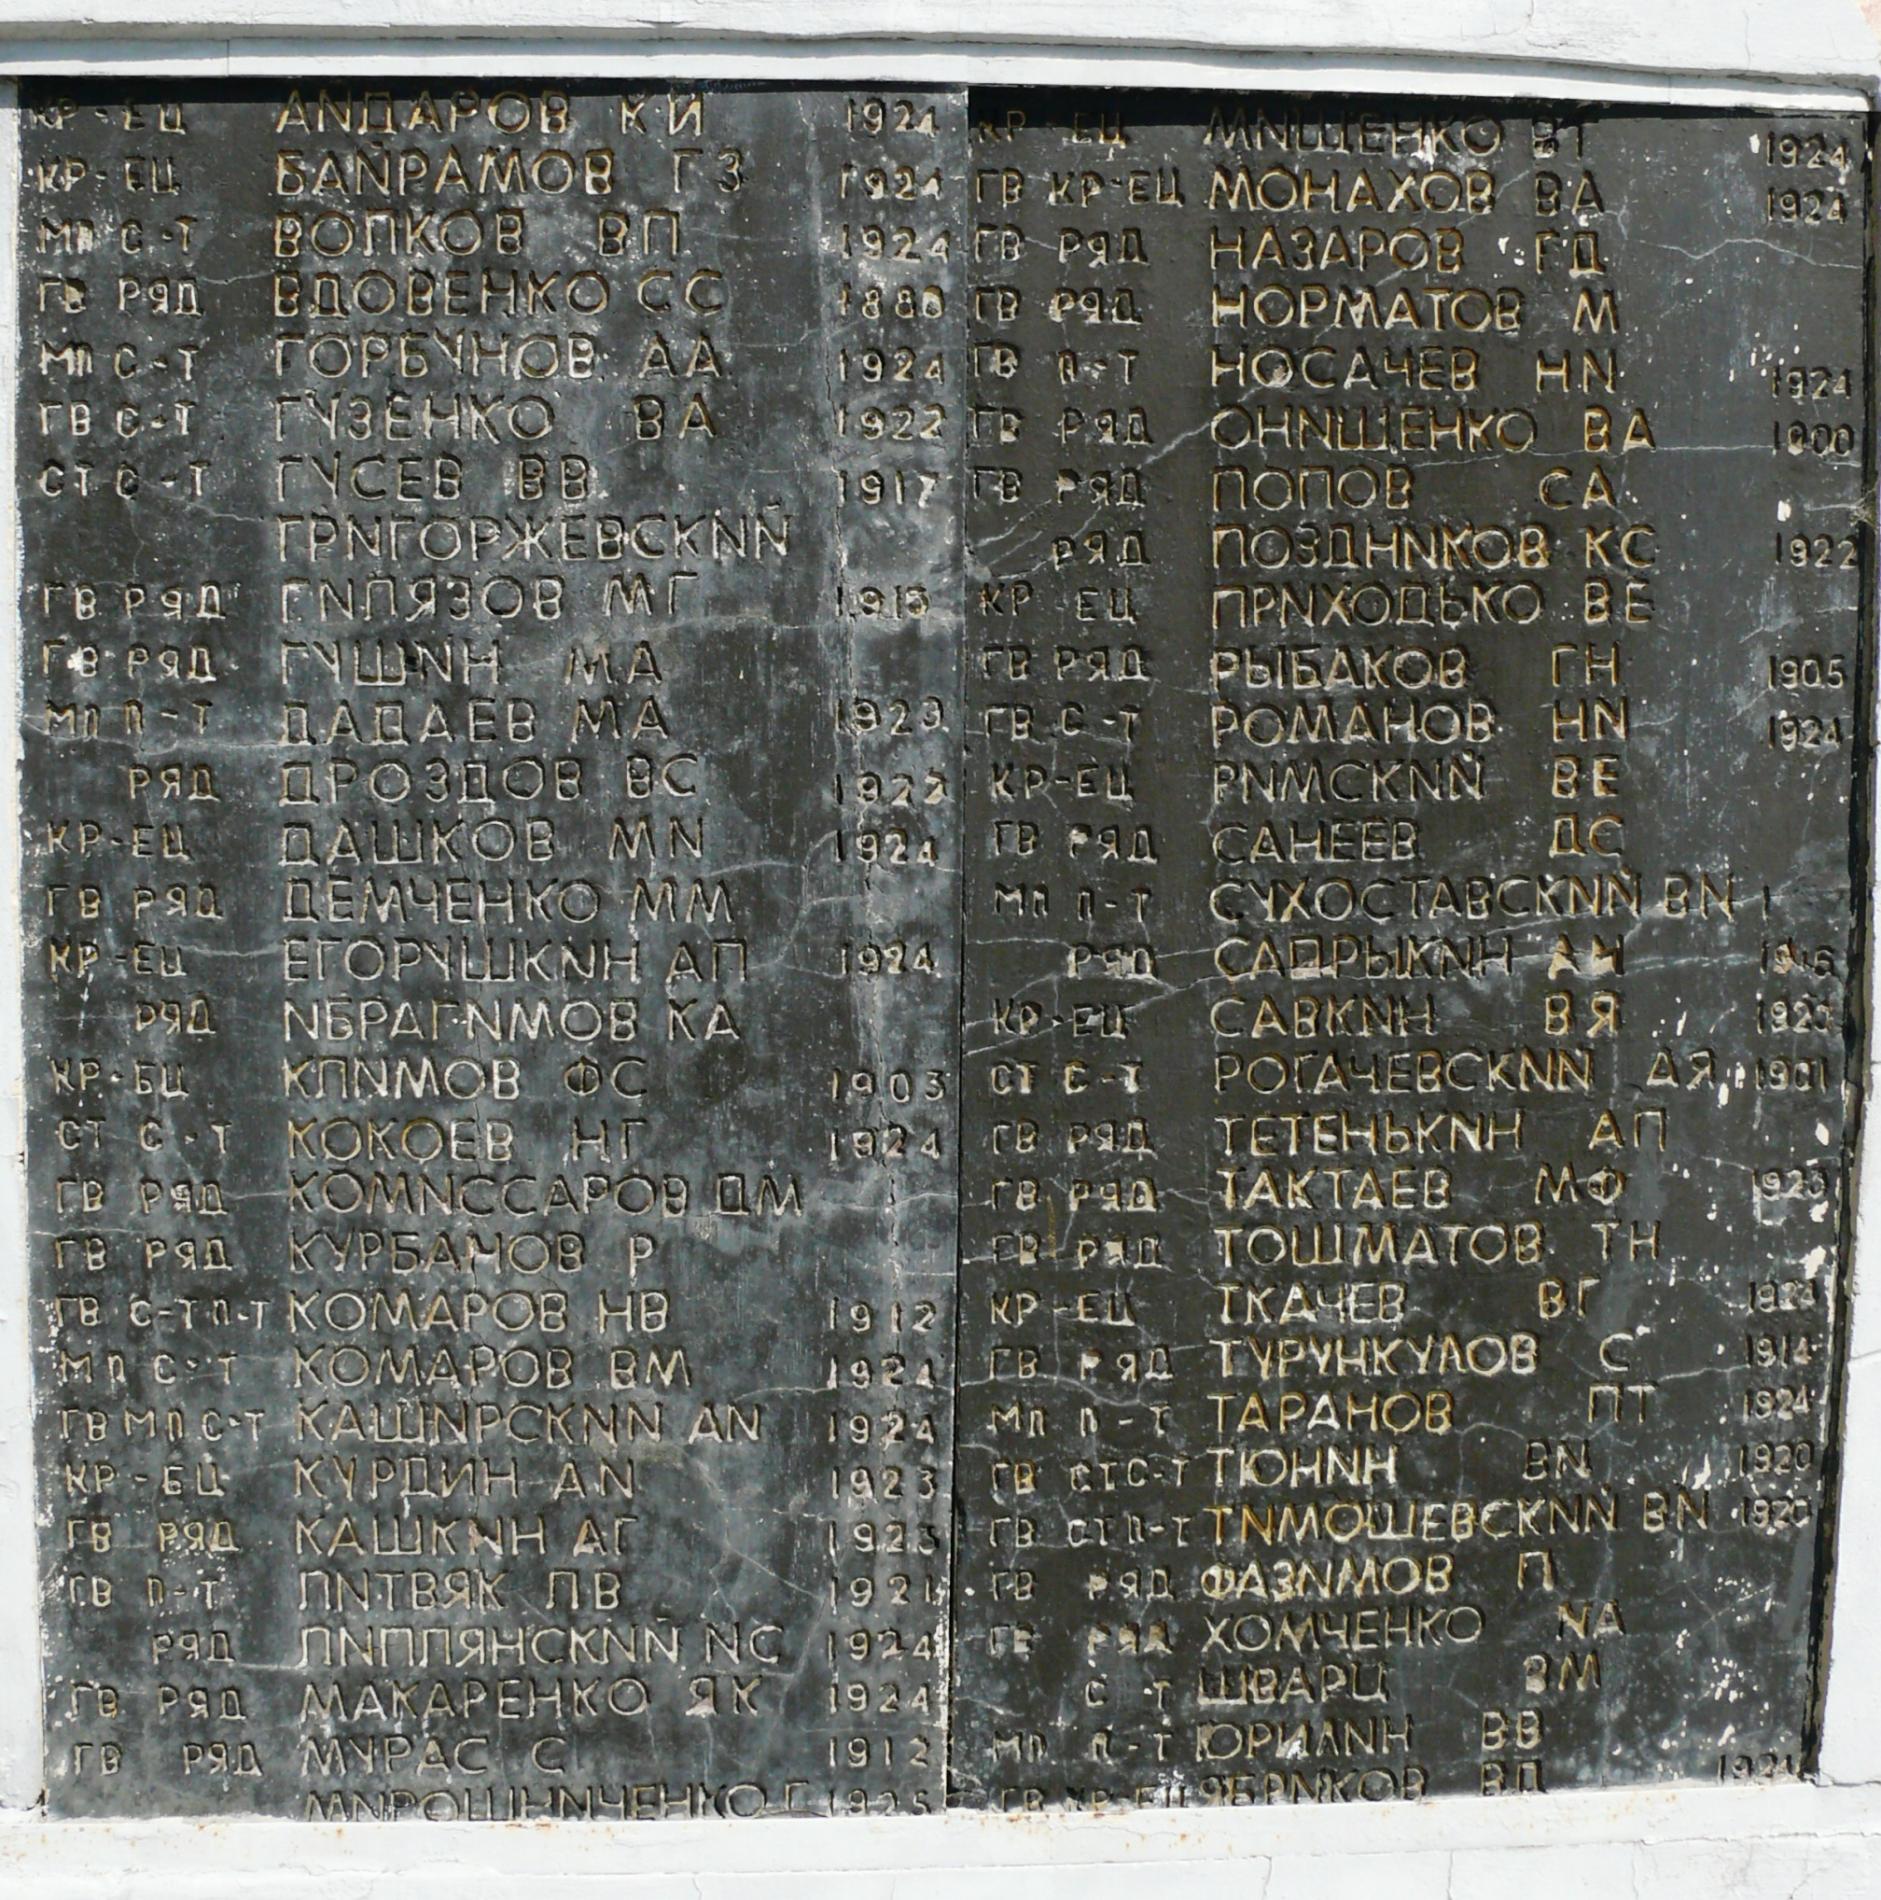 КР-ЕЦ АИДАРОВ К И 1924
КР-ЕЦ БАЙРАМОВ Г З 1924
МЛ С-Т ВОЛКОВ ВП 1924
ГВ РЯД ВДОВЕНКО СС
МЛ С-Т ГОРБУНОВ АА 1924
ГВ С-Т ГУЗЕНКО ВА 1922
СТ С-Т ГУСЕВ ВВ 1917
ГРИГОРЖЕВСКИЙ
ГВ РЯД ГИЛЯЗОВ МГ 1915
ГВ РЯД ГУШИН МА
МЛ Л-Т ДАДАЕВ МА 1923
РЯД ДРОЗДОВ ВС 1922
КР-ЕЦ ДАШКОВ МИ 1924
ГВ РЯД ДЕМЧЕНКО ММ
КР-ЕЦ ЕГОРУШКИН АП 1924
РЯД ИБРАГИМОВ КА
КР-БЦ КЛИМОВ ФС 1903
СТ С-Т КОКОЕВ НГ 1924
ГВ РЯД КОМИССАРОВ ДМ
ГВ РЯД КУРБАНОВ Р
ГВ С-Т Л-Т КОМАРОВ НВ 1912
МЛ С-Т КОМАРОВ ВМ 1924
ГВ МЛ С-Т КАШИРСКИЙ АИ 1924
КР-БЦ КУРДИН АИ 1923
ГВ РЯД КАШКИН АГ 1923
ГВ Л-Т ЛИТВЯК ЛВ 1921
РЯД ЛИПЛЯНСКИЙ ИС 1924
ГВ РЯД МАКАРЕНКО ЯК 1924
ГВ РЯД МУРАС С 1912
МИРОШНИЧЕНКО Г 1925
КР-ЕЦ МИЩЕНКО ВТ 1924
ГВ КР-ЕЦ МОНАХОВ ВА 1924
ГВ РЯД НАЗАРОВ ГД
ГВ РЯД НОРМАТОВ М
ГВ Л-Т НОСАЧЕВ НИ 1924
ГВ РЯД ОНИЩЕНКО ВА
ГВ РЯД ПОПОВ СА
РЯД ПОЗДНИКОВ КС 1922
КР-ЕЦ ПРИХОДЬКО ВЕ
ГВ РЯД РЫБАКОВ ГН 1905
ГВ С-Т РОМАНОВ НИ 1924
КР-ЕЦ РИМСКИЙ ВЕ
ГВ РЯД САНЕЕВ ДС
МЛ Л-Т СУХОСТАВСКИЙ ВИ
РЯД САПРЫКИН АН
КР-ЕЦ САВКИН ВЯ
СТ С-Т РОГАЧЕВСКИЙ АЯ 1901
ГВ РЯД ТЕТЕНЬКИН АП
ГВ РЯД ТАКТАЕВ МФ 1923
ГВ РЯД ТОШМАТОВ ТН
КР-ЕЦ ТКАЧЕВ ВГ 1924
ГВ РЯД ТУРУНКУЛОВ С 1914
МЛ Л-Т ТАРАНОВ ПТ 1924
ГВ СТ С-Т ТЮНИН ВИ 1920
ГВ СТ Л-Т ТИМОШЕВСКИЙ ВИ 1920
ГВ РЯД ФАЗИМОВ П
ГВ РЯД ХОМЧЕНКО ИА
С-Т ШВАРЦ ВМ
МЛ Л-Т ЮРИЛИН ВВ
ГВ КР-ЕЦ ЯБРИКОВ ВД